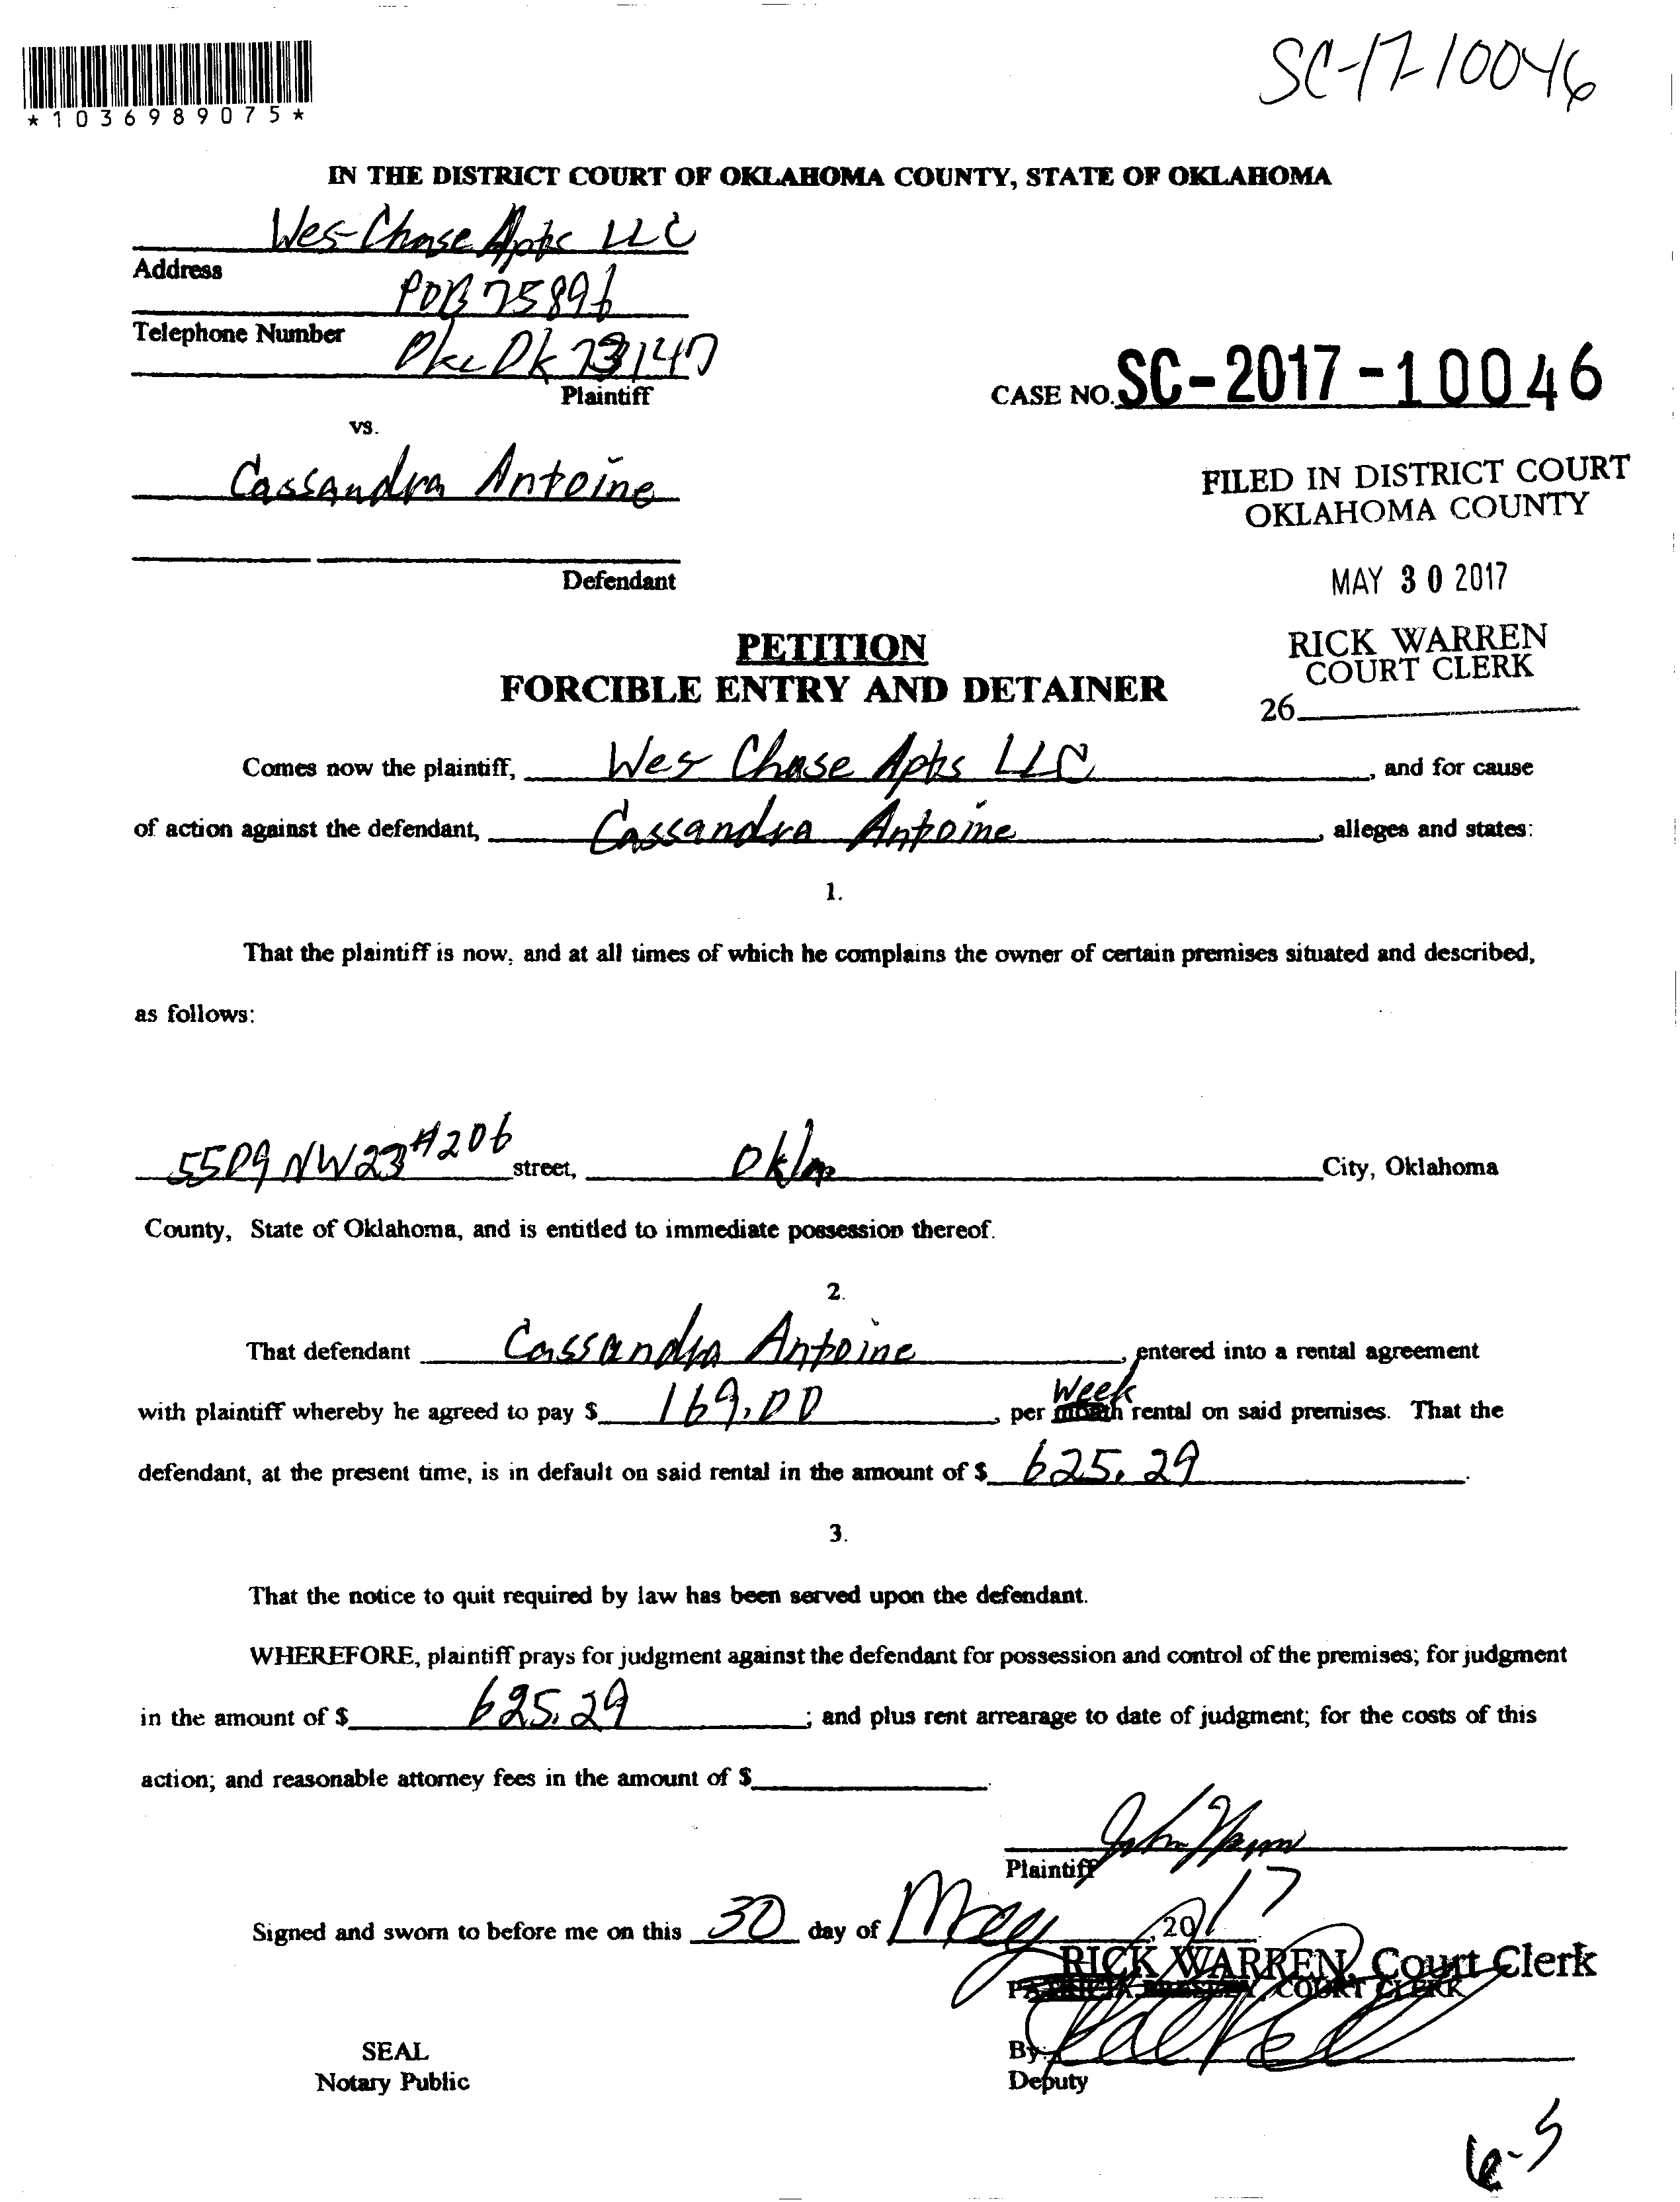 SC-17-10046
*1036989075*
IN THE DISTRICT COURT OF OKLAHOMA COUNTY, STATE OF OKLAHOMA
Wes-Chase Apts LLC
Address
POB 75896
Telephone Number
Okc Ok 73147
Plaintiff
CASE NO. SC-2017-10046
vs.
Cassandra Antoine
FILED IN DISTRICT COURT
OKLAHOMA COUNTY
Defendant
MAY 30 2017
PETITION
RICK WARREN
COURT CLERK
FORCIBLE ENTRY AND DETAINER
26
Comes now the plaintiff, Wes Chase Apts LLC, and for cause
of action against the defendant, Cassandra Antoine, alleges and states:
1.
That the plaintiff is now, and at all times of which he complains the owner of certain premises situated and described,
as follows:
5509 NW 23 #206 street, Okla City, Oklahoma
County, State of Oklahoma, and is entitled to immediate possession thereof.
2.
That defendant Cassandra Antoine, entered into a rental agreement
with plaintiff whereby he agreed to pay $ 169.00, per Week month rental on said premises. That the
defendant, at the present time, is in default on said rental in the amount of $ 625.29.
3.
That the notice to quit required by law has been served upon the defendant.
WHEREFORE, plaintiff prays for judgment against the defendant for possession and control of the premises; for judgment
in the amount of $ 625.29; and plus rent arrearage to date of judgment; for the costs of this
action; and reasonable attorney fees in the amount of $.
John
Plaintiff
Signed and sworn to before me on this 30 day of May, 2017
RICK WARREN, Court Clerk
COURT CLERK
SEAL
By:
Notary Public
Deputy
6-5